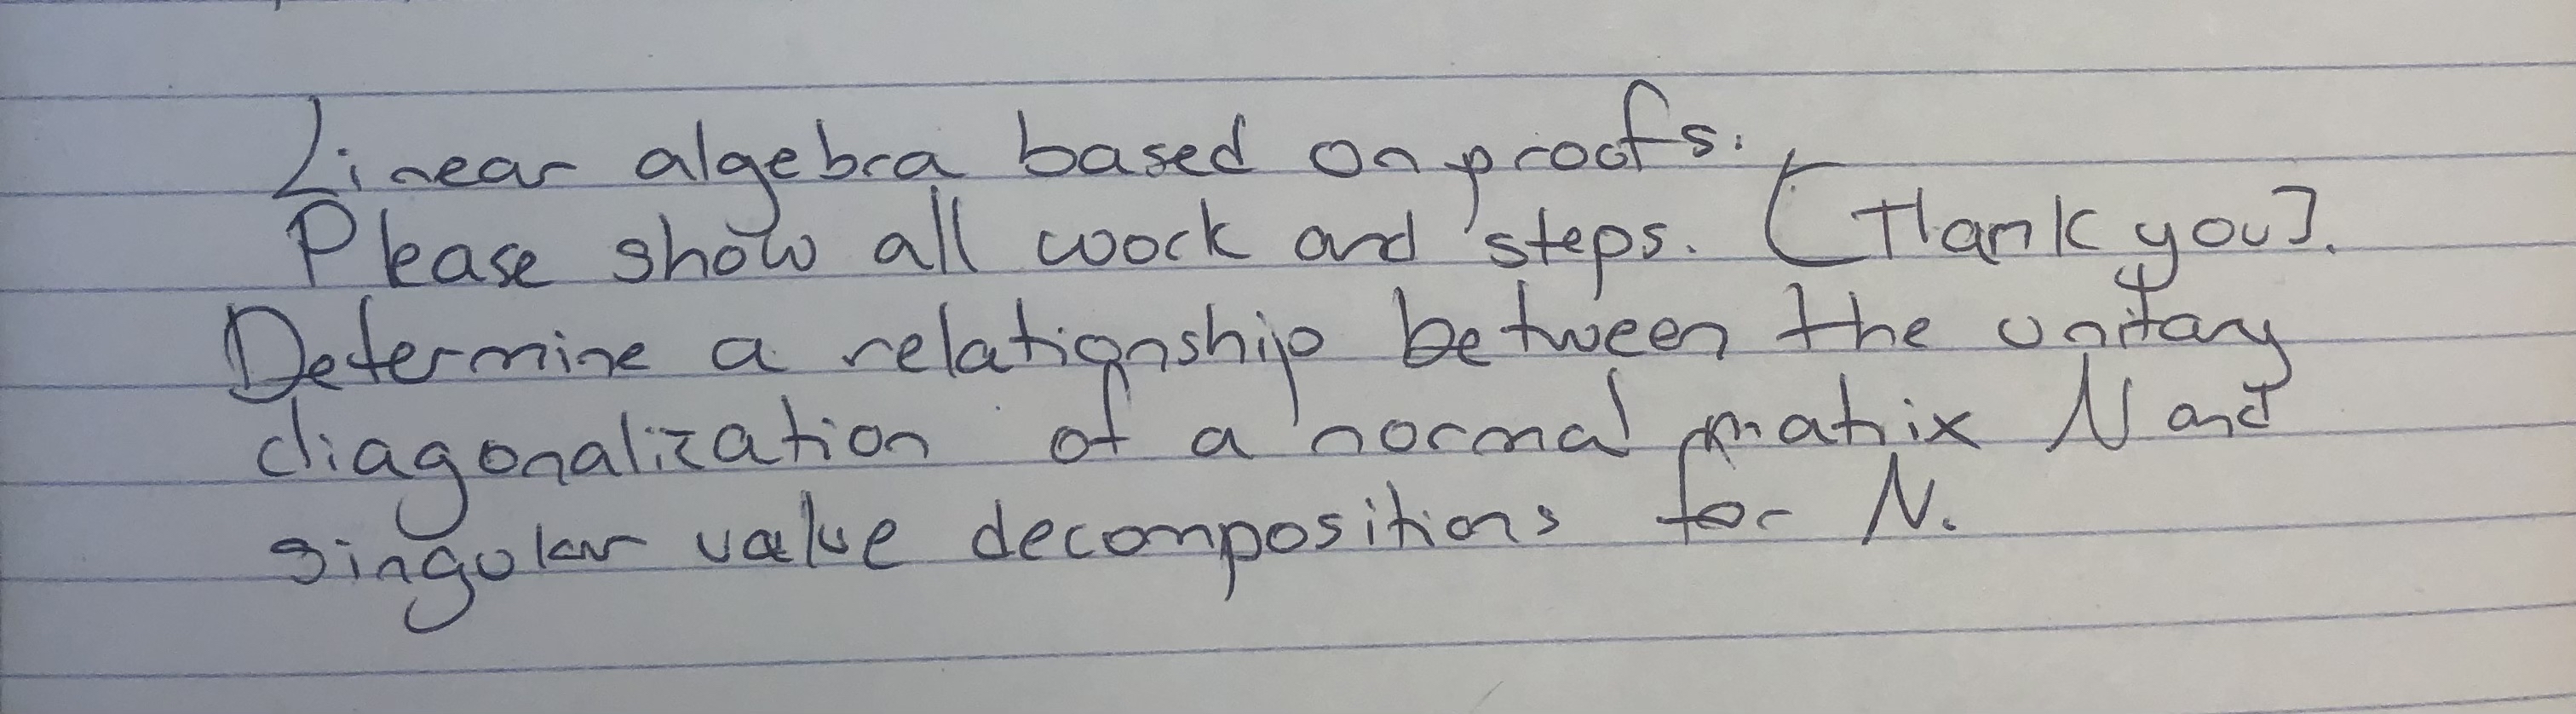 Linear algebra based on proofs.
Please show all work and steps. [Thank you].
Determine a relationship between the unitary
diagonalization of a normal matrix N and
singular value decompositions for N.